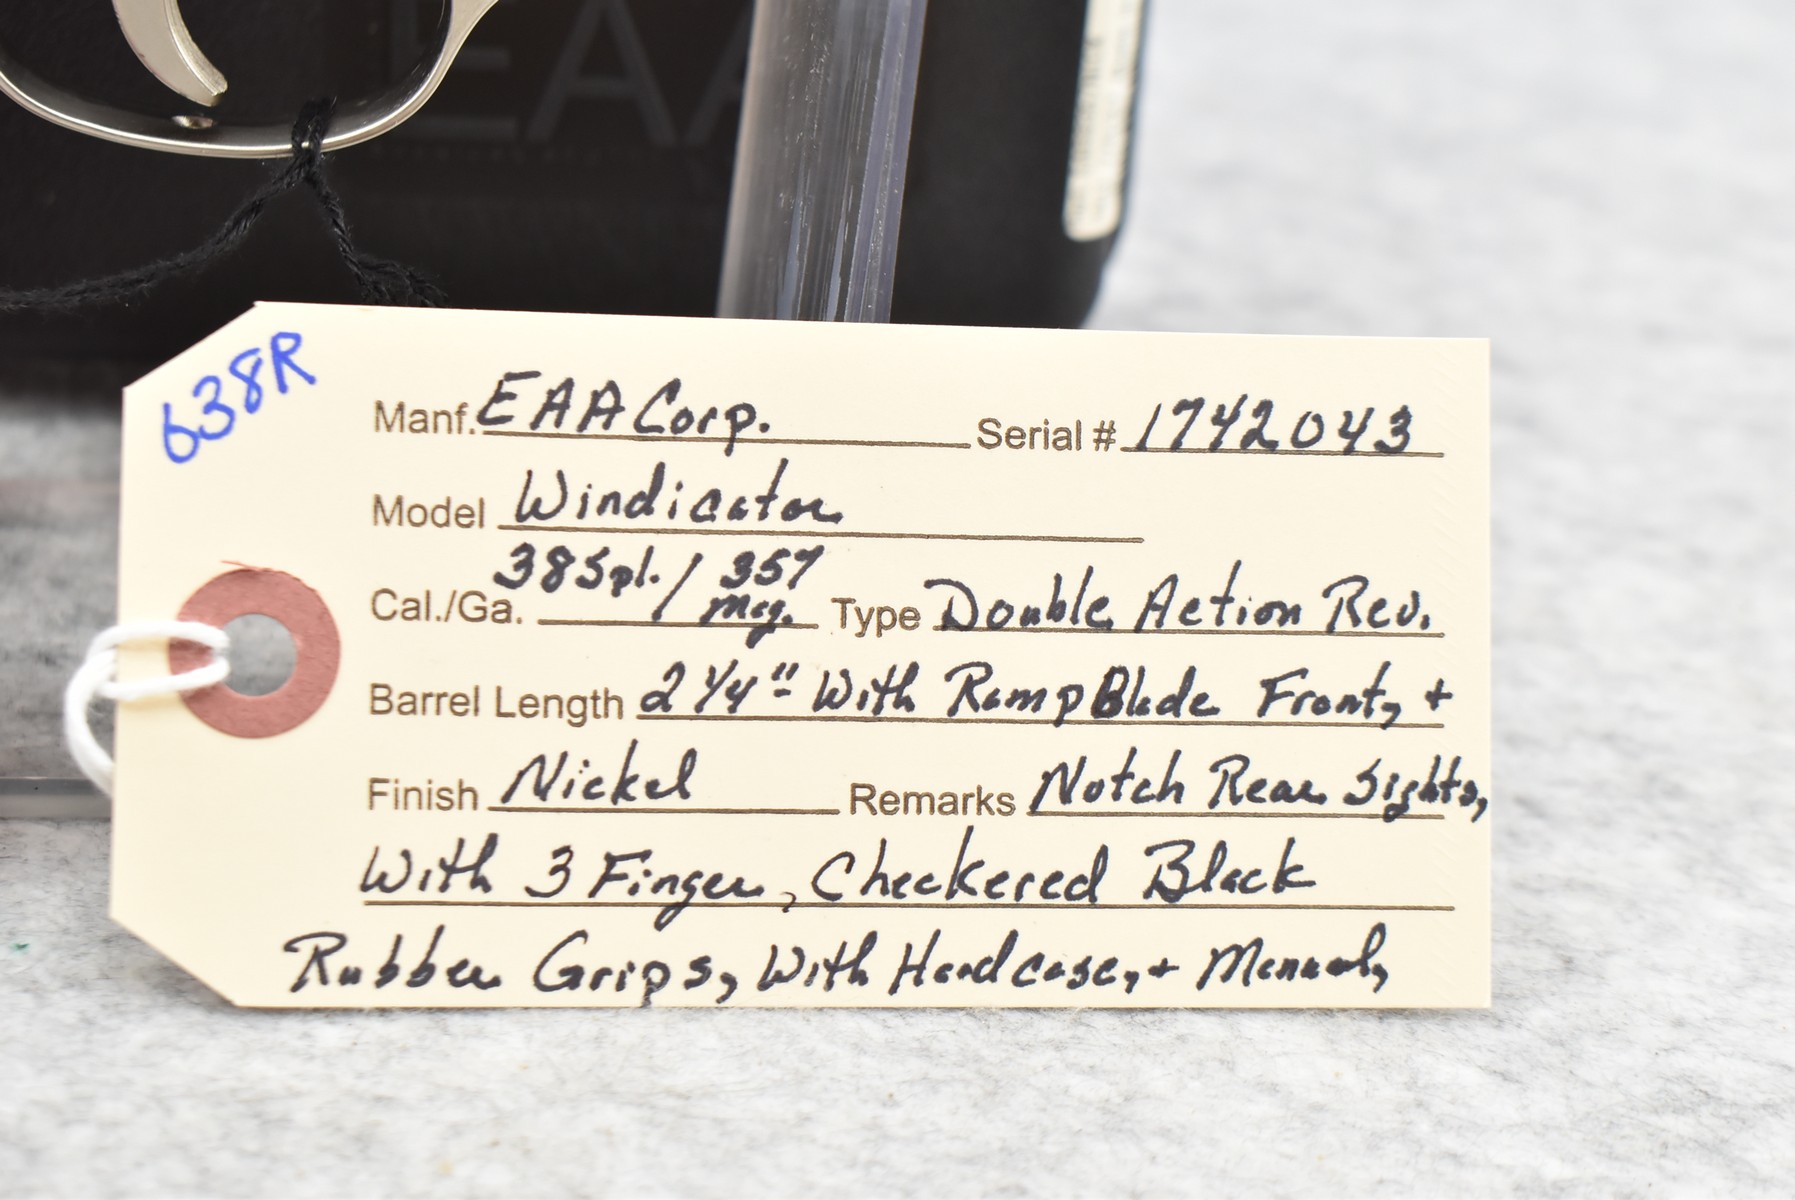 EAA
638R
Manf. EAA Corp. Serial # 1742043
Model Windicator
Cal./Ga. 38 Spl. / 357 Mag. Type Double Action Rev.
Barrel Length 2 1/4" With Ramp Blade Front, +
Finish Nickel Remarks Notch Rear Sights,
With 3 Finger, Checkered Black
Rubber Grips, With Hardcase, + Manual,